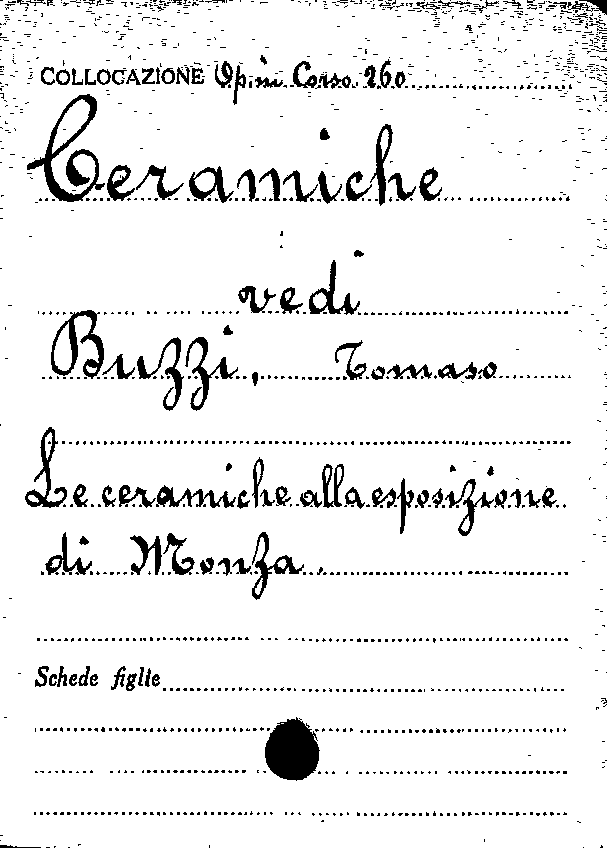 COLLOCAZIONE Op. in Corso 260
Ceramiche
vedi
Buzzi, Tomaso
Le ceramiche alla esposizione
di Monza.
Schede figlie